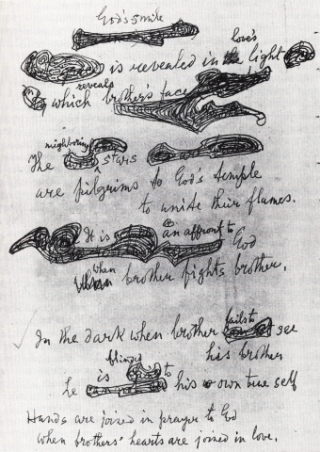 God's smile
love's
is revealed in the light
reveals
which brother's face
neighboring
The stars
are pilgrims to God's temple
to unite their flames.
It is an affront to God
when brother fights brother.
In the dark when brother fails to see
his brother
he is blind to his own true self
Hands are joined in prayer to God
when brothers' hearts are joined in love.